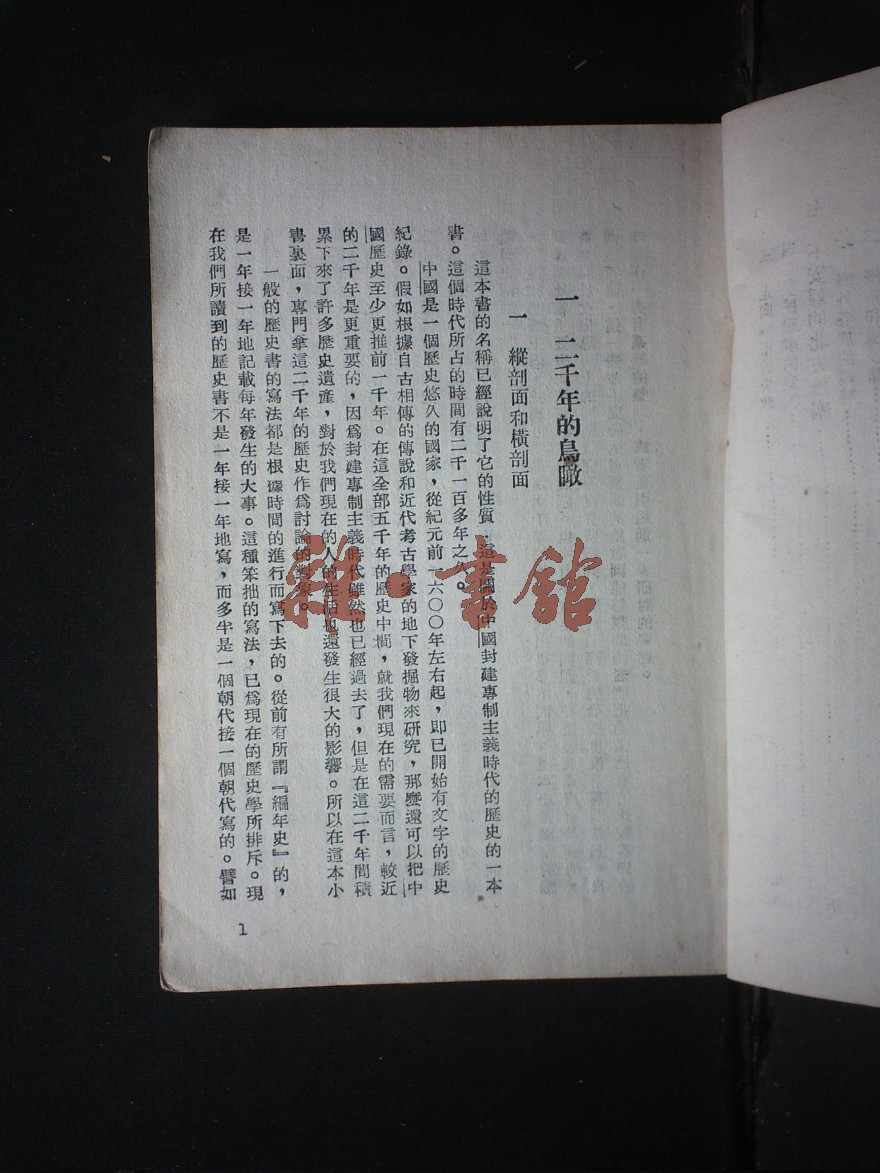 一 二千年的鳥瞰
一 縱剖面和橫剖面
這本書的名稱已經說明了它的性質 這是關於中國封建專制主義時代的歷史的一本
書。這個時代所占的時間有二千一百多年之久。
中國是一個歷史悠久的國家，從紀元前一六〇〇年左右起，即已開始有文字的歷史
紀錄。假如根據自古相傳的傳說和近代考古學家的地下發掘物來研究，那麼還可以把中
國歷史至少更推前一千年。在這全部五千年的歷史中間，就我們現在的需要而言，較近
的二千年是更重要的，因爲封建專制主義時代雖然也已經過去了，但是在這二千年間積
累下來了許多歷史遺產，對於我們現在的人的生活也還發生很大的影響。所以在這本小
書裏面，專門拿這二千年的歷史作爲討論的對象。
一般的歷史書的寫法都是根據時間的進行而寫下去的。從前有所謂『編年史』的，
是一年接一年地記載每年發生的大事。這種笨拙的寫法，已爲現在的歷史學所排斥。現
在我們所讀到的歷史書不是一年接一年地寫，而多半是一個朝代接一個朝代寫的。譬如
1
雜·書館